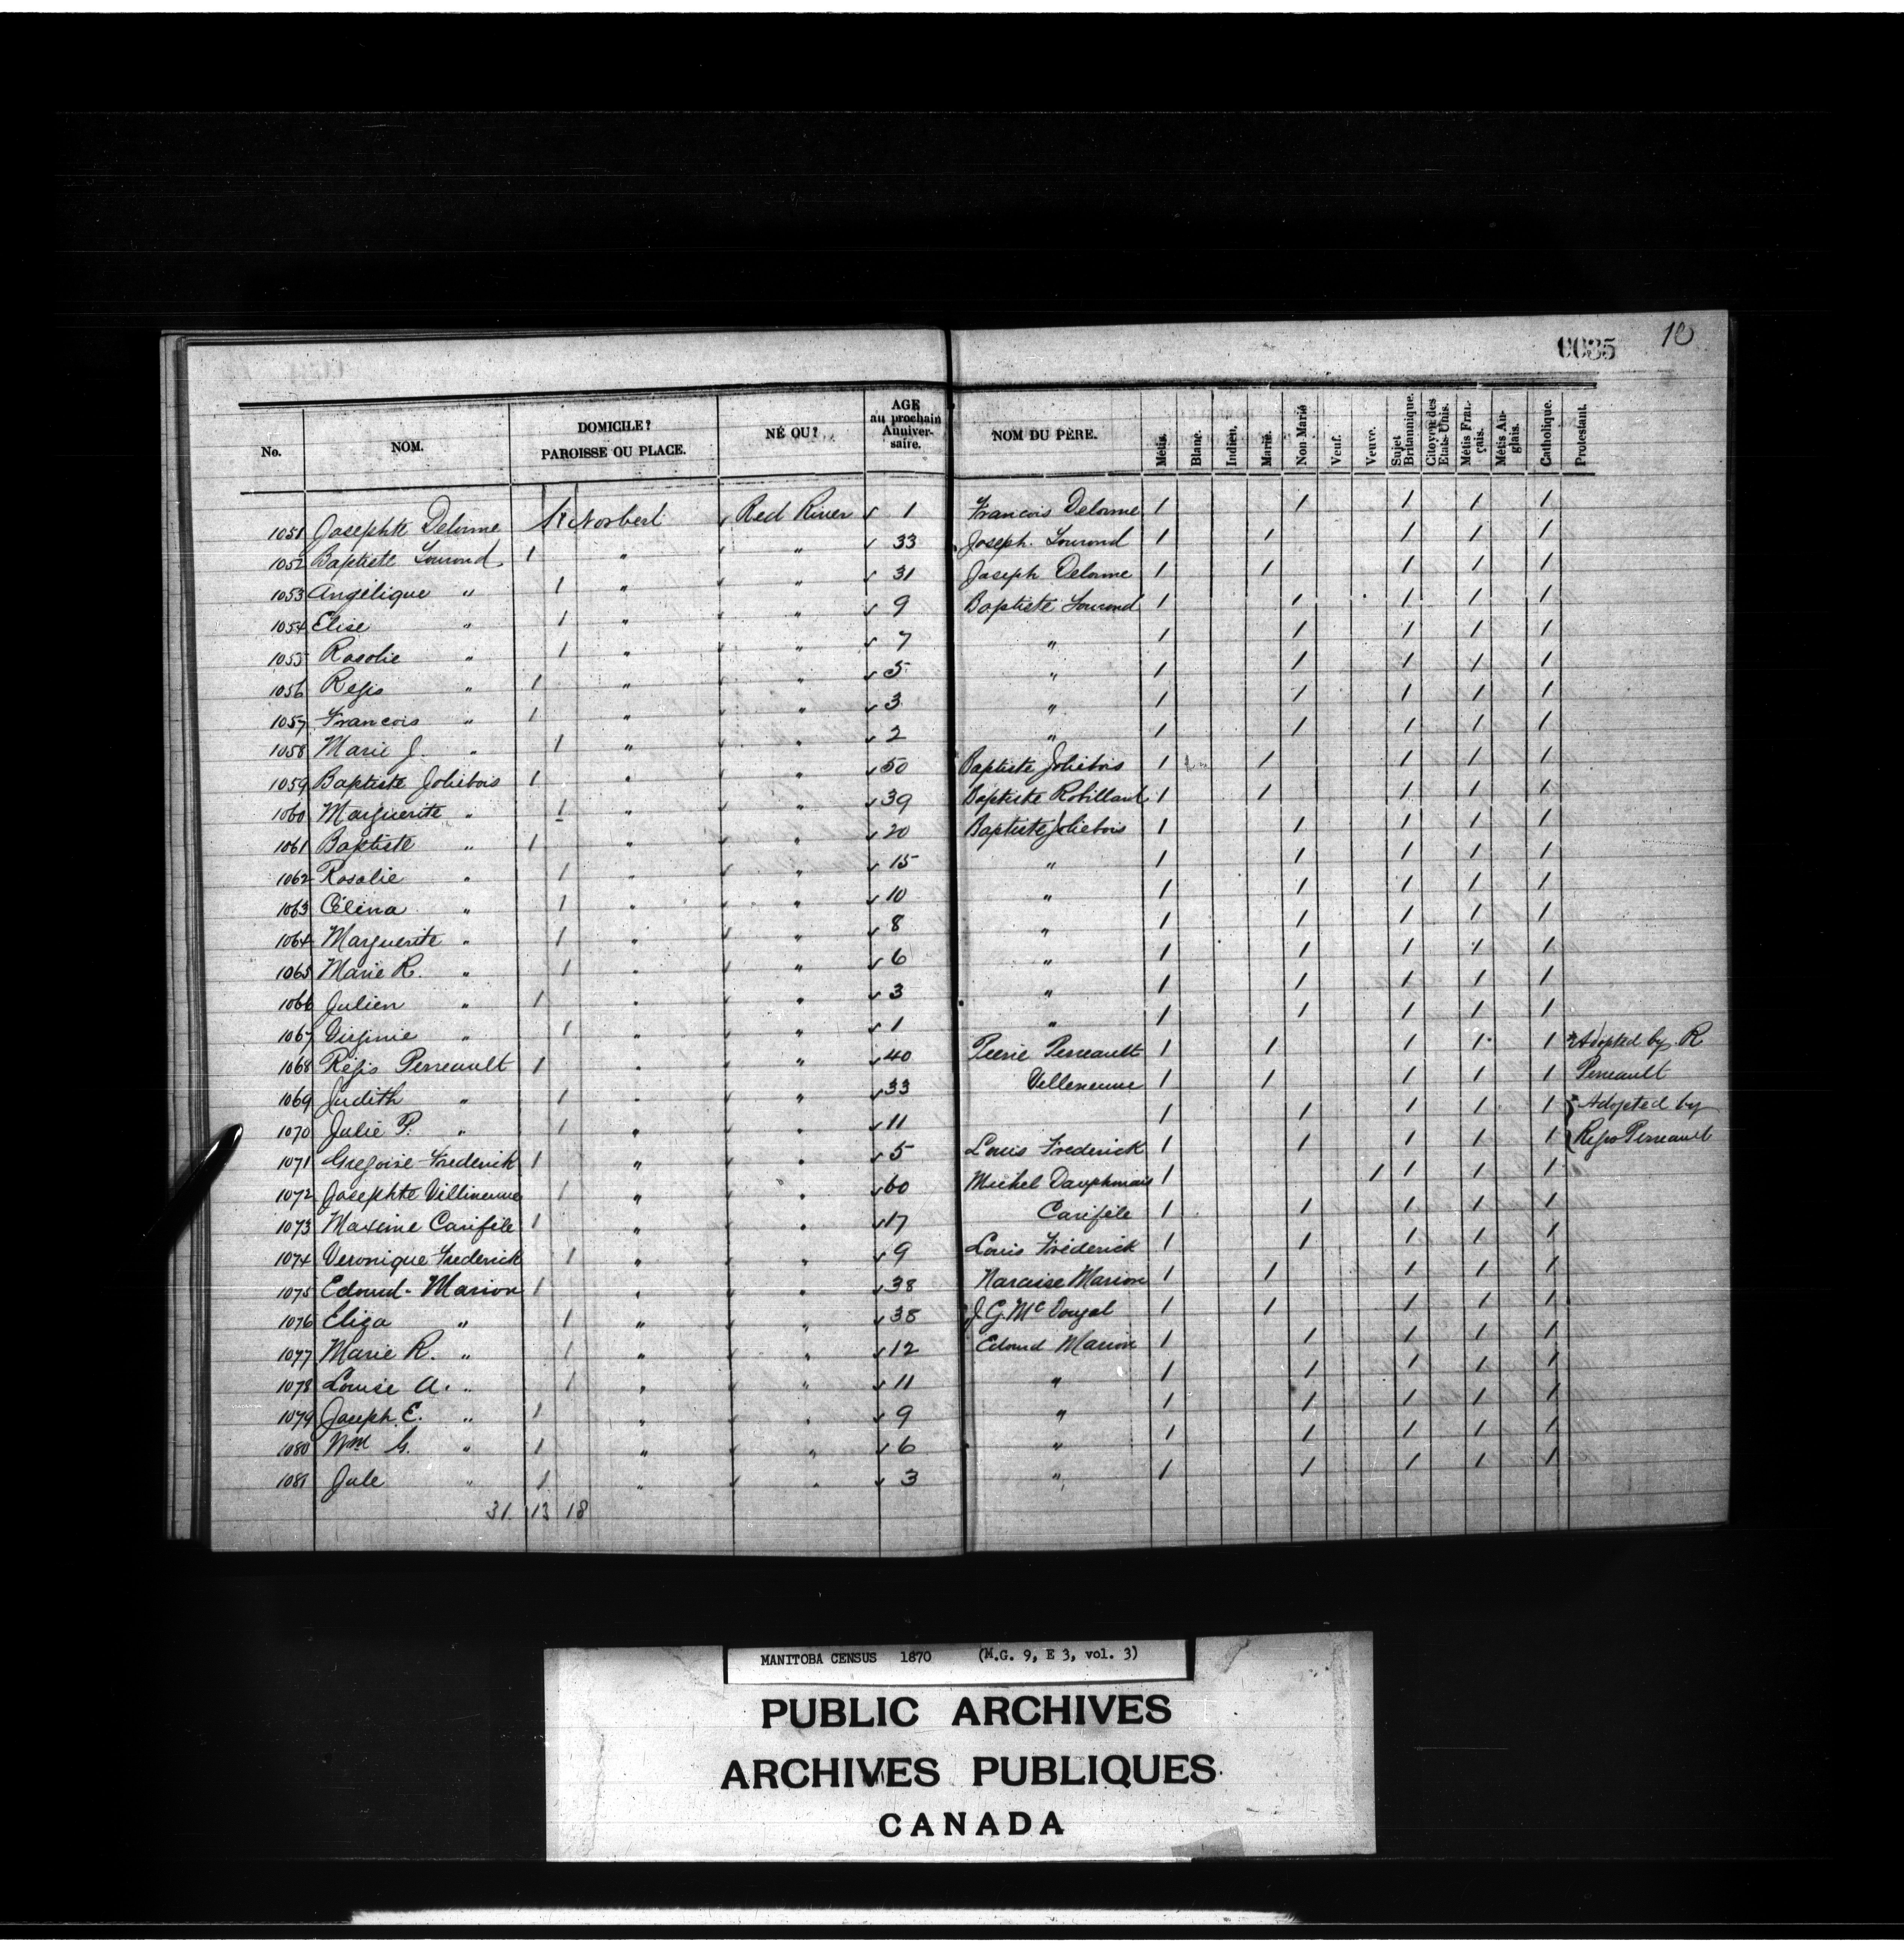 0035 10
No. NOM. DOMICILE? PAROISSE OU PLACE. NÉ OU? AGE au prochain Anniver-saire. NOM DU PÈRE. Métis. Blanc. Indien. Marié. Non Marié Veuf. Veuve. Sujet Britannique. Citoyen des Etats-Unis. Métis Fran-çais. Métis An-glais. Catholique. Protestant.
1051 Josephte Delorme St Norbert √ Red River √ 1 Francois Delorme 1 1 1 1 1
1052 Baptiste Lourond 1 " √ " √ 33 Joseph Lourond 1 1 1 1 1
1053 Angélique " 1 " √ " √ 31 Joseph Delorme 1 1 1 1 1
1054 Elise " 1 " √ " √ 9 Baptiste Lourond 1 1 1 1 1
1055 Rosalie " 1 " √ " √ 7 " 1 1 1 1 1
1056 Régis " 1 " √ " √ 5 " 1 1 1 1 1
1057 Francois " 1 " √ " √ 3 " 1 1 1 1 1
1058 Marie J. " 1 " √ " √ 2 " 1 1 1 1 1
1059 Baptiste Joliebois 1 " √ " √ 50 Baptiste Joliebois 1 1 1 1 1
1060 Marguerite " 1 " √ " √ 39 Baptiste Robillard 1 1 1 1 1
1061 Baptiste " 1 " √ " √ 20 Baptiste Joliebois 1 1 1 1 1
1062 Rosalie " 1 " √ " √ 15 " 1 1 1 1 1
1063 Célina " 1 " √ " √ 10 " 1 1 1 1 1
1064 Marguerite " 1 " √ " √ 8 " 1 1 1 1 1
1065 Marie R. " 1 " √ " √ 6 " 1 1 1 1 1
1066 Julien " 1 " √ " √ 3 " 1 1 1 1 1
1067 Virginie " 1 " √ " √ 1 " 1 1 1 1 1
1068 Régis Perreault 1 " √ " √ 40 Pierre Perreault 1 1 1 1 1 Adopted by R
1069 Judith " 1 " √ " √ 33 Villeneuve 1 1 1 1 1 Perreault
1070 Julie P. " 1 " √ " √ 11 1 1 1 1 1 Adopted by
1071 Gregoire Frederick 1 " √ " √ 5 Louis Frederick 1 1 1 1 1 Regis Perreault
1072 Josephte Villineuve 1 " √ " √ 60 Michel Dauphinais 1 1 1 1 1
1073 Maxime Carifile 1 " √ " √ 17 Carifile 1 1 1 1 1
1074 Veronique Frederick 1 " √ " √ 9 Louis Fréderick 1 1 1 1 1
1075 Edouard Marion 1 " √ " √ 38 Narcisse Marion 1 1 1 1 1
1076 Eliza " 1 " √ " √ 38 J. G. McDougal 1 1 1 1 1
1077 Marie R. " 1 " √ " √ 12 Edourd Marion 1 1 1 1 1
1078 Louise A. " 1 " √ " √ 11 " 1 1 1 1 1
1079 Joseph E. " 1 " √ " √ 9 " 1 1 1 1 1
1080 Wm G. " 1 " √ " √ 6 " 1 1 1 1 1
1081 Jule " 1 " √ " √ 3 " 1 1 1 1 1
31 13 18
MANITOBA CENSUS 1870 (M.G. 9, E 3, vol. 3)
PUBLIC ARCHIVES
ARCHIVES PUBLIQUES
CANADA